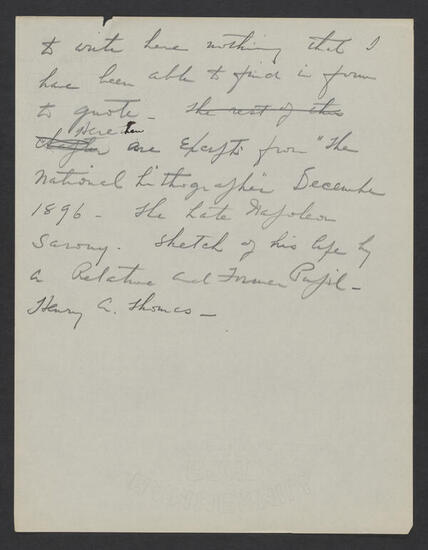 to write here nothing that I
have been able to find in form
to quote - The rest of this
Here then
Chapter are Excerpts from "The
National Lithographer" December
1896 - The Late Napoleon
Sarony. Sketch of his life by
a Relative and Former Pupil -
Henry A. Thomas -